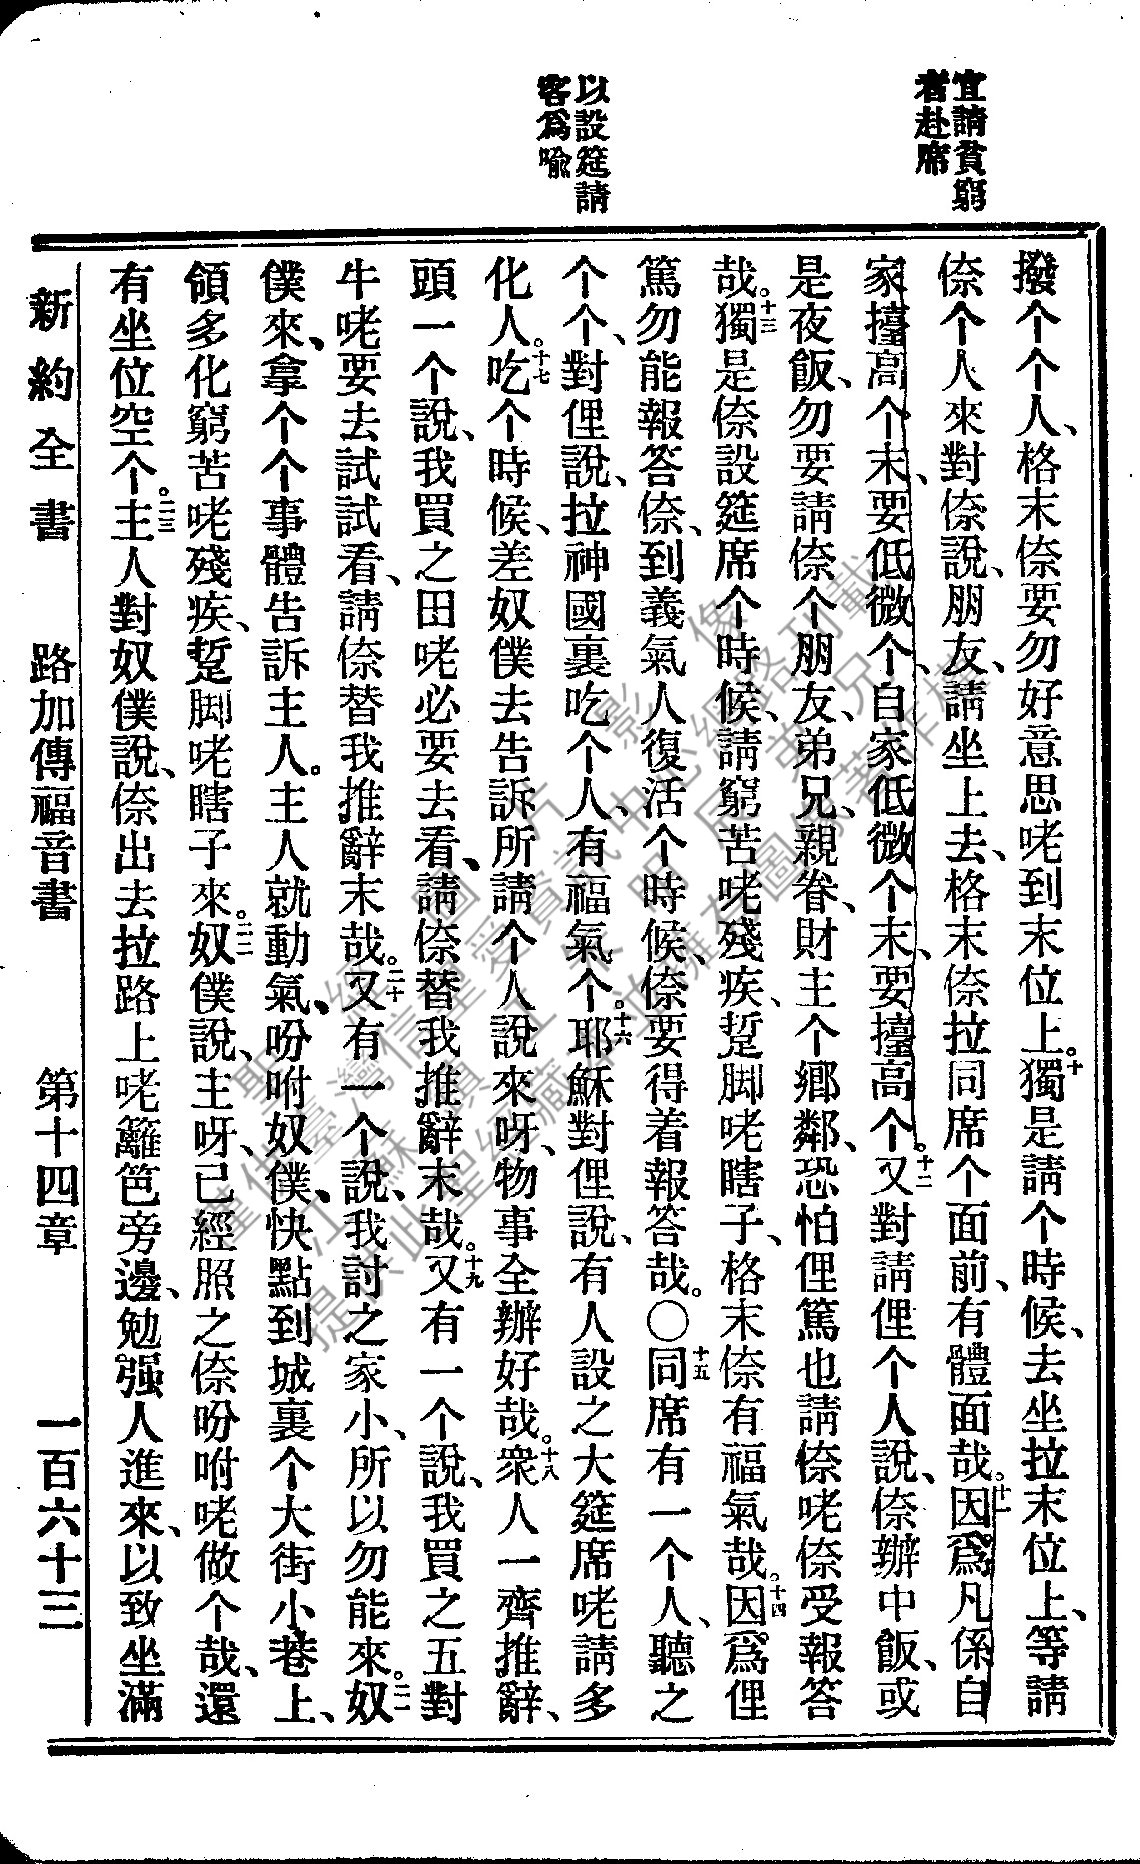 宜請貧窮
者赴席
以設筵請
客爲喻
撥个个人、格末倷要勿好意思咾到末位上。十獨是請个時候、去坐拉末位上、等請
倷个人來對倷說、朋友、請坐上去、格末倷拉同席个面前、有體面哉。十一因爲凡係自
家擡高个末、要低微个、自家低微个末、要擡高个。十二又對請俚个人說、倷辦中飯、或
是夜飯、勿要請倷个朋友、弟兄、親眷、財主个鄉鄰、恐怕俚篤也請倷咾倷受報答
哉。十三獨是倷設筵席个時候、請窮苦咾殘疾、蹔脚咾瞎子、格末倷有福氣哉。十四因爲俚
篤勿能報答倷、到義氣人復活个時候、倷要得着報答哉。〇十五同席有一个人、聽之
个个、對俚說、拉神國裏吃个人、有福氣个。十六耶穌對俚說、有人設之大筵席咾請多
化人。十七吃个時候、差奴僕去告訴所請个人說來呀、物事全辦好哉。十八衆人一齊推辭、
頭一个說、我買之田咾必要去看、請倷替我推辭末哉。十九又有一个說、我買之五對
牛咾要去試試看、請倷替我推辭末哉。二十又有一个說、我討之家小、所以勿能來。二一奴
僕來、拿个个事體告訴主人。主人就動氣、吩咐奴僕、快點到城裏个大街小巷上、
領多化窮苦咾殘疾、蹔脚咾瞎子來。二二奴僕說、主呀、已經照之倷吩咐咾做个哉、還
有坐位空个。二三主人對奴僕說、倷出去拉路上咾籬笆旁邊、勉强人進來、以致坐滿
新約全書 路加傳福音書 第十四章 一百六十三